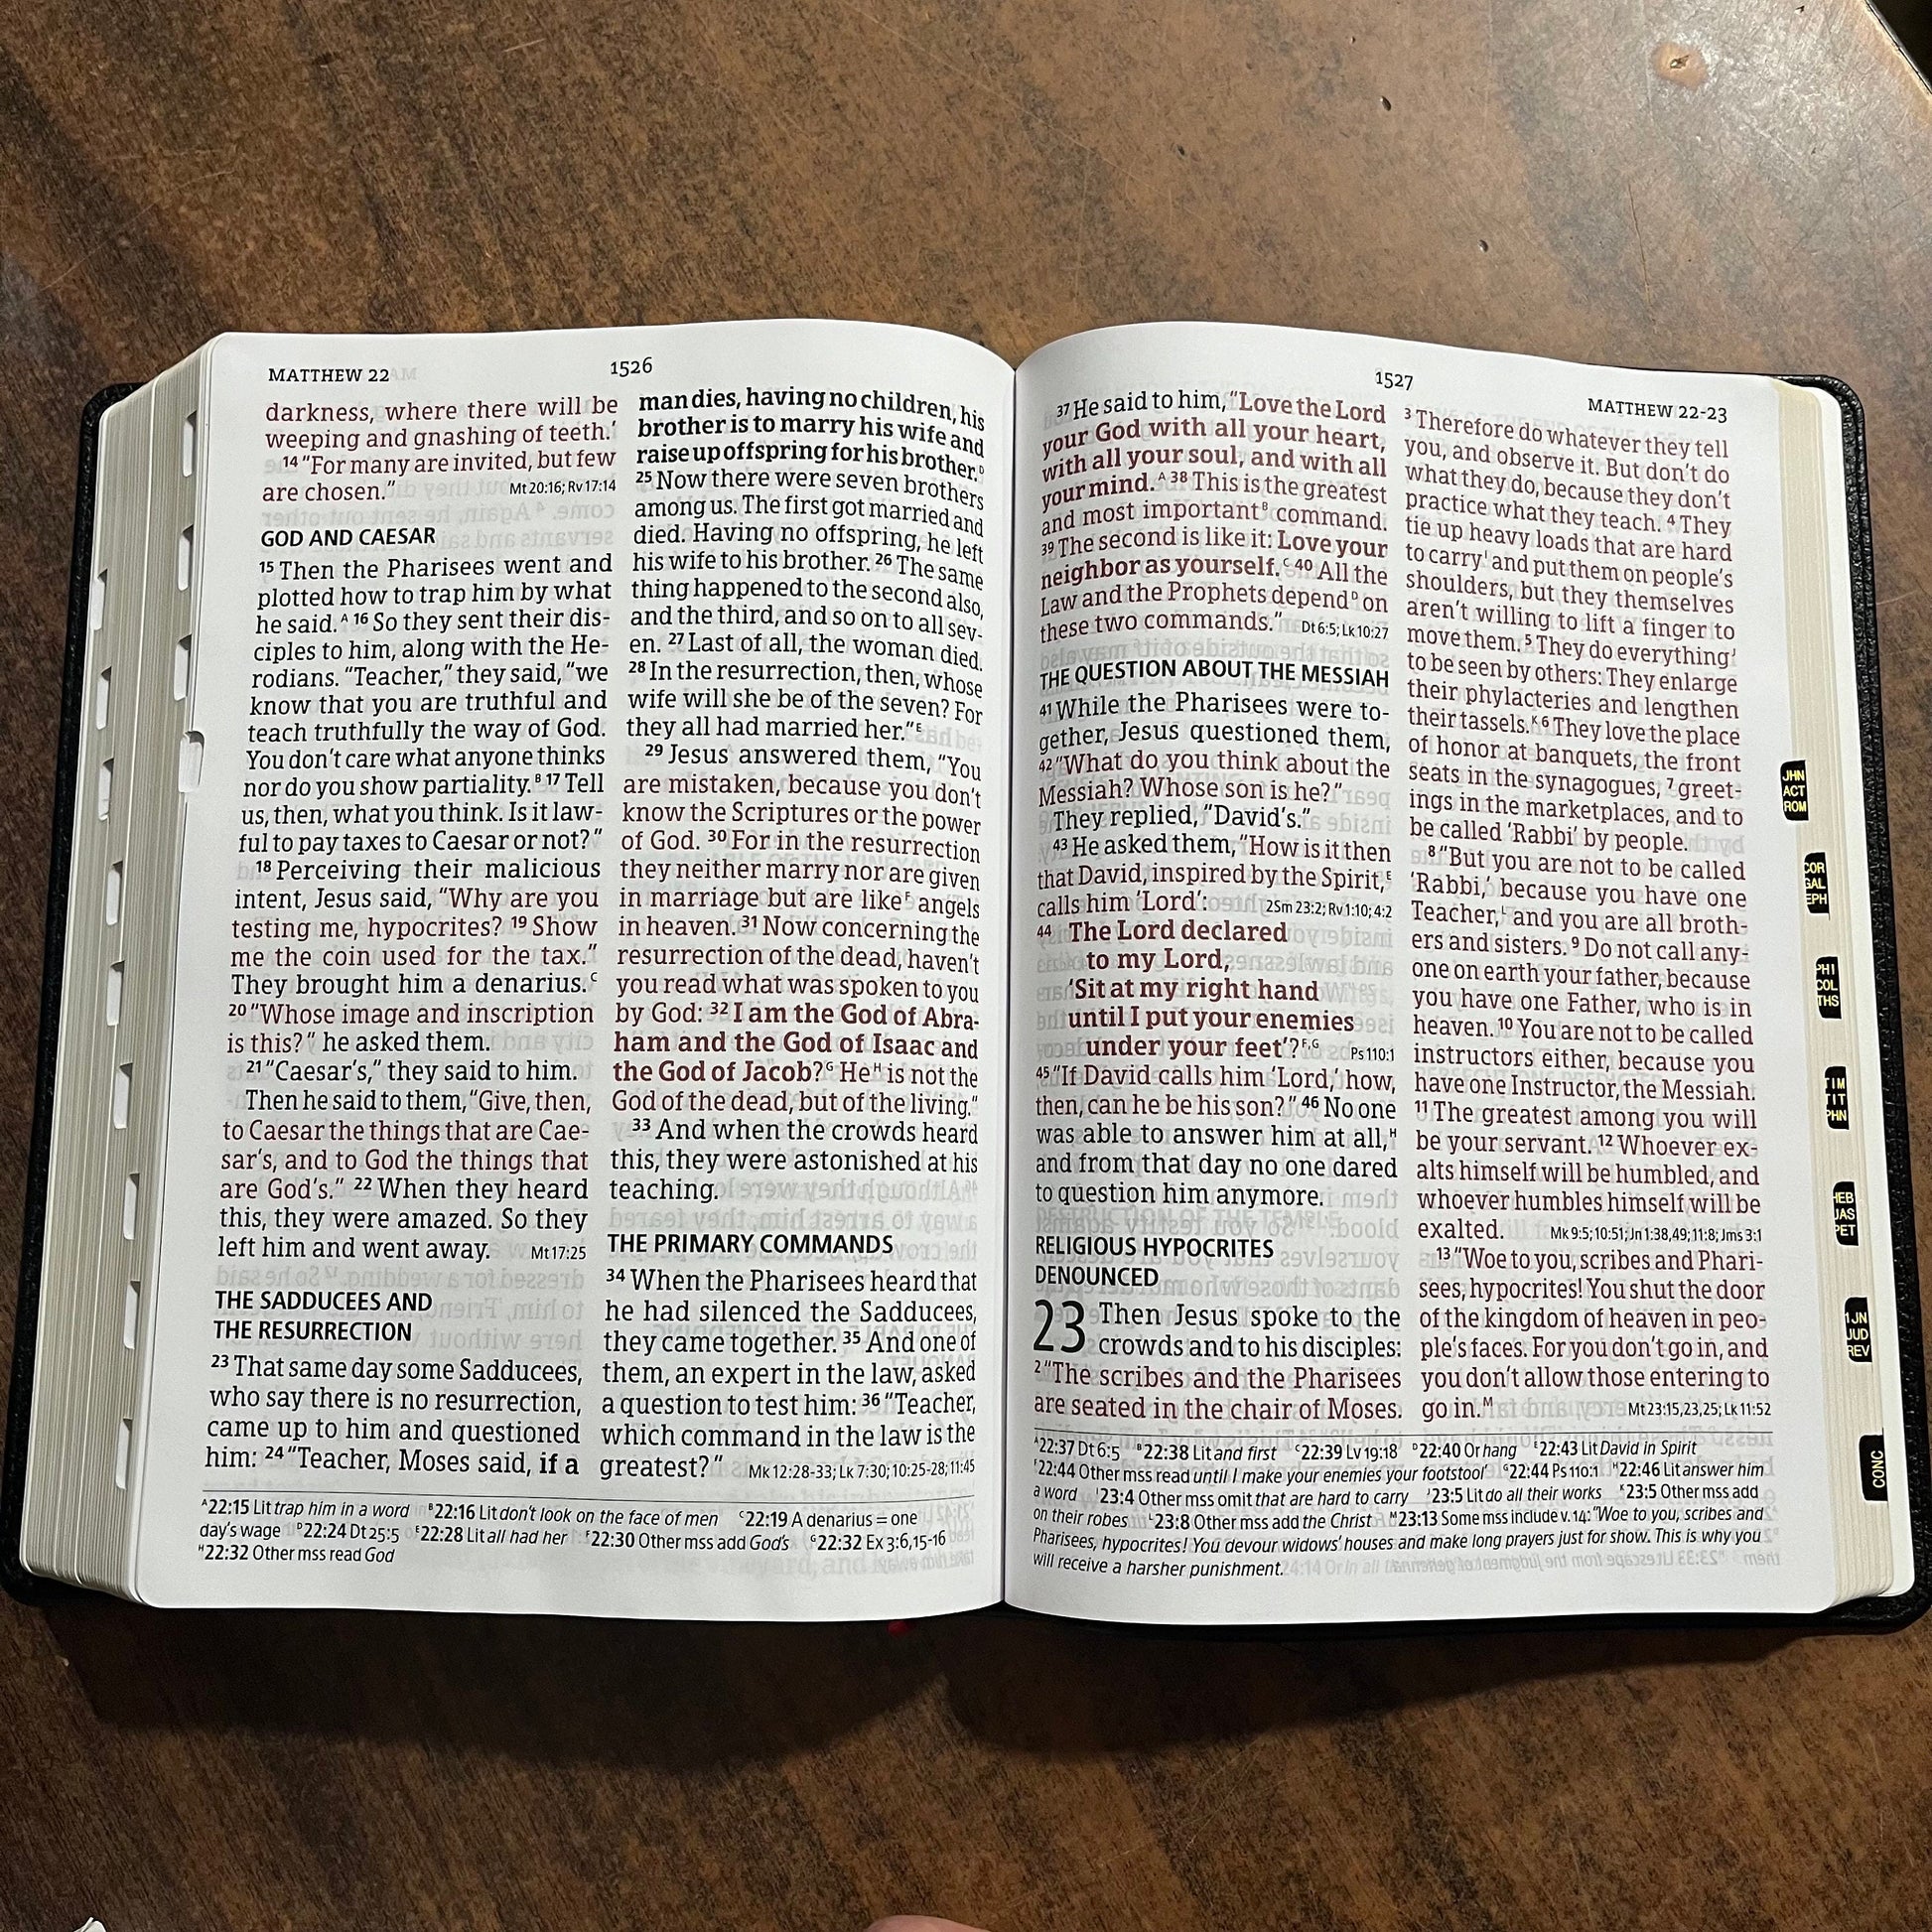 MATTHEW 22
1526
darkness, where there will be
weeping and gnashing of teeth.’
14 “For many are invited, but few
are chosen.” Mt 20:16; Rv 17:14
GOD AND CAESAR
15 Then the Pharisees went and
plotted how to trap him by what
he said.A 16 So they sent their dis-
ciples to him, along with the He-
rodians. “Teacher,” they said, “we
know that you are truthful and
teach truthfully the way of God.
You don’t care what anyone thinks
nor do you show partiality.B 17 Tell
us, then, what you think. Is it law-
ful to pay taxes to Caesar or not?”
18 Perceiving their malicious
intent, Jesus said, “Why are you
testing me, hypocrites? 19 Show
me the coin used for the tax.”
They brought him a denarius.C
20 “Whose image and inscription
is this?” he asked them.
21 “Caesar’s,” they said to him.
Then he said to them, “Give, then,
to Caesar the things that are Cae-
sar’s, and to God the things that
are God’s.” 22 When they heard
this, they were amazed. So they
left him and went away. Mt 17:25
THE SADDUCEES AND
THE RESURRECTION
23 That same day some Sadducees,
who say there is no resurrection,
came up to him and questioned
him: 24 “Teacher, Moses said, if a
man dies, having no children, his
brother is to marry his wife and
raise up offspring for his brother.D
25 Now there were seven brothers
among us. The first got married and
died. Having no offspring, he left
his wife to his brother. 26 The same
thing happened to the second also,
and the third, and so on to all sev-
en. 27 Last of all, the woman died.
28 In the resurrection, then, whose
wife will she be of the seven? For
they all had married her.”E
29 Jesus answered them, “You
are mistaken, because you don’t
know the Scriptures or the power
of God. 30 For in the resurrection
they neither marry nor are given
in marriage but are likeF angels
in heaven. 31 Now concerning the
resurrection of the dead, haven’t
you read what was spoken to you
by God: 32 I am the God of Abra-
ham and the God of Isaac and
the God of Jacob?G HeH is not the
God of the dead, but of the living.”
33 And when the crowds heard
this, they were astonished at his
teaching.
THE PRIMARY COMMANDS
34 When the Pharisees heard that
he had silenced the Sadducees,
they came together. 35 And one of
them, an expert in the law, asked
a question to test him: 36 “Teacher,
which command in the law is the
greatest?” Mk 12:28-33; Lk 7:30; 10:25-28; 11:45
A22:15 Lit trap him in a word B22:16 Lit don’t look on the face of men C22:19 A denarius = one
day’s wage D22:24 Dt 25:5 E22:28 Lit all had her F22:30 Other mss add God’s G22:32 Ex 3:6,15-16
H22:32 Other mss read God
1527
MATTHEW 22-23
37 He said to him, “Love the Lord
your God with all your heart,
with all your soul, and with all
your mind.A 38 This is the greatest
and most importantB command.
39 The second is like it: Love your
neighbor as yourself.C 40 All the
Law and the Prophets dependD on
these two commands.” Dt 6:5; Lk 10:27
THE QUESTION ABOUT THE MESSIAH
41 While the Pharisees were to-
gether, Jesus questioned them,
42 “What do you think about the
Messiah? Whose son is he?”
They replied, “David’s.”
43 He asked them, “How is it then
that David, inspired by the Spirit,E
calls him ‘Lord’: 2Sm 23:2; Rv 1:10; 4:2
44 The Lord declared
to my Lord,
‘Sit at my right hand
until I put your enemies
under your feet’?F,G Ps 110:1
45 “If David calls him ‘Lord,’ how,
then, can he be his son?” 46 No one
was able to answer him at all,H
and from that day no one dared
to question him anymore.
RELIGIOUS HYPOCRITES
DENOUNCED
23 Then Jesus spoke to the
crowds and to his disciples:
2 “The scribes and the Pharisees
are seated in the chair of Moses.
3 Therefore do whatever they tell
you, and observe it. But don’t do
what they do, because they don’t
practice what they teach. 4 They
tie up heavy loads that are hard
to carryI and put them on people’s
shoulders, but they themselves
aren’t willing to lift a finger to
move them. 5 They do everythingJ
to be seen by others: They enlarge
their phylacteries and lengthen
their tassels.K 6 They love the place
of honor at banquets, the front
seats in the synagogues, 7 greet-
ings in the marketplaces, and to
be called ‘Rabbi’ by people.
8 “But you are not to be called
‘Rabbi,’ because you have one
Teacher,L and you are all broth-
ers and sisters. 9 Do not call any-
one on earth your father, because
you have one Father, who is in
heaven. 10 You are not to be called
instructors either, because you
have one Instructor, the Messiah.
11 The greatest among you will
be your servant. 12 Whoever ex-
alts himself will be humbled, and
whoever humbles himself will be
exalted. Mk 9:5; 10:51; Jn 1:38,49; 11:8; Jms 3:1
13 “Woe to you, scribes and Phari-
sees, hypocrites! You shut the door
of the kingdom of heaven in peo-
ple’s faces. For you don’t go in, and
you don’t allow those entering to
go in.M Mt 23:15,23,25; Lk 11:52
A22:37 Dt 6:5 B22:38 Lit and first C22:39 Lv 19:18 D22:40 Or hang E22:43 Lit David in Spirit
F22:44 Other mss read until I make your enemies your footstool’ G22:44 Ps 110:1 H22:46 Lit answer him
a word I23:4 Other mss omit that are hard to carry J23:5 Lit do all their works K23:5 Other mss add
on their robes L23:8 Other mss add the Christ M23:13 Some mss include v. 14: “Woe to you, scribes and
Pharisees, hypocrites! You devour widows’ houses and make long prayers just for show. This is why you
will receive a harsher punishment.
JHN
ACT
ROM
COR
GAL
EPH
PHI
COL
THS
TIM
TIT
PHN
HEB
JAS
PET
1JN
JUD
REV
CONC